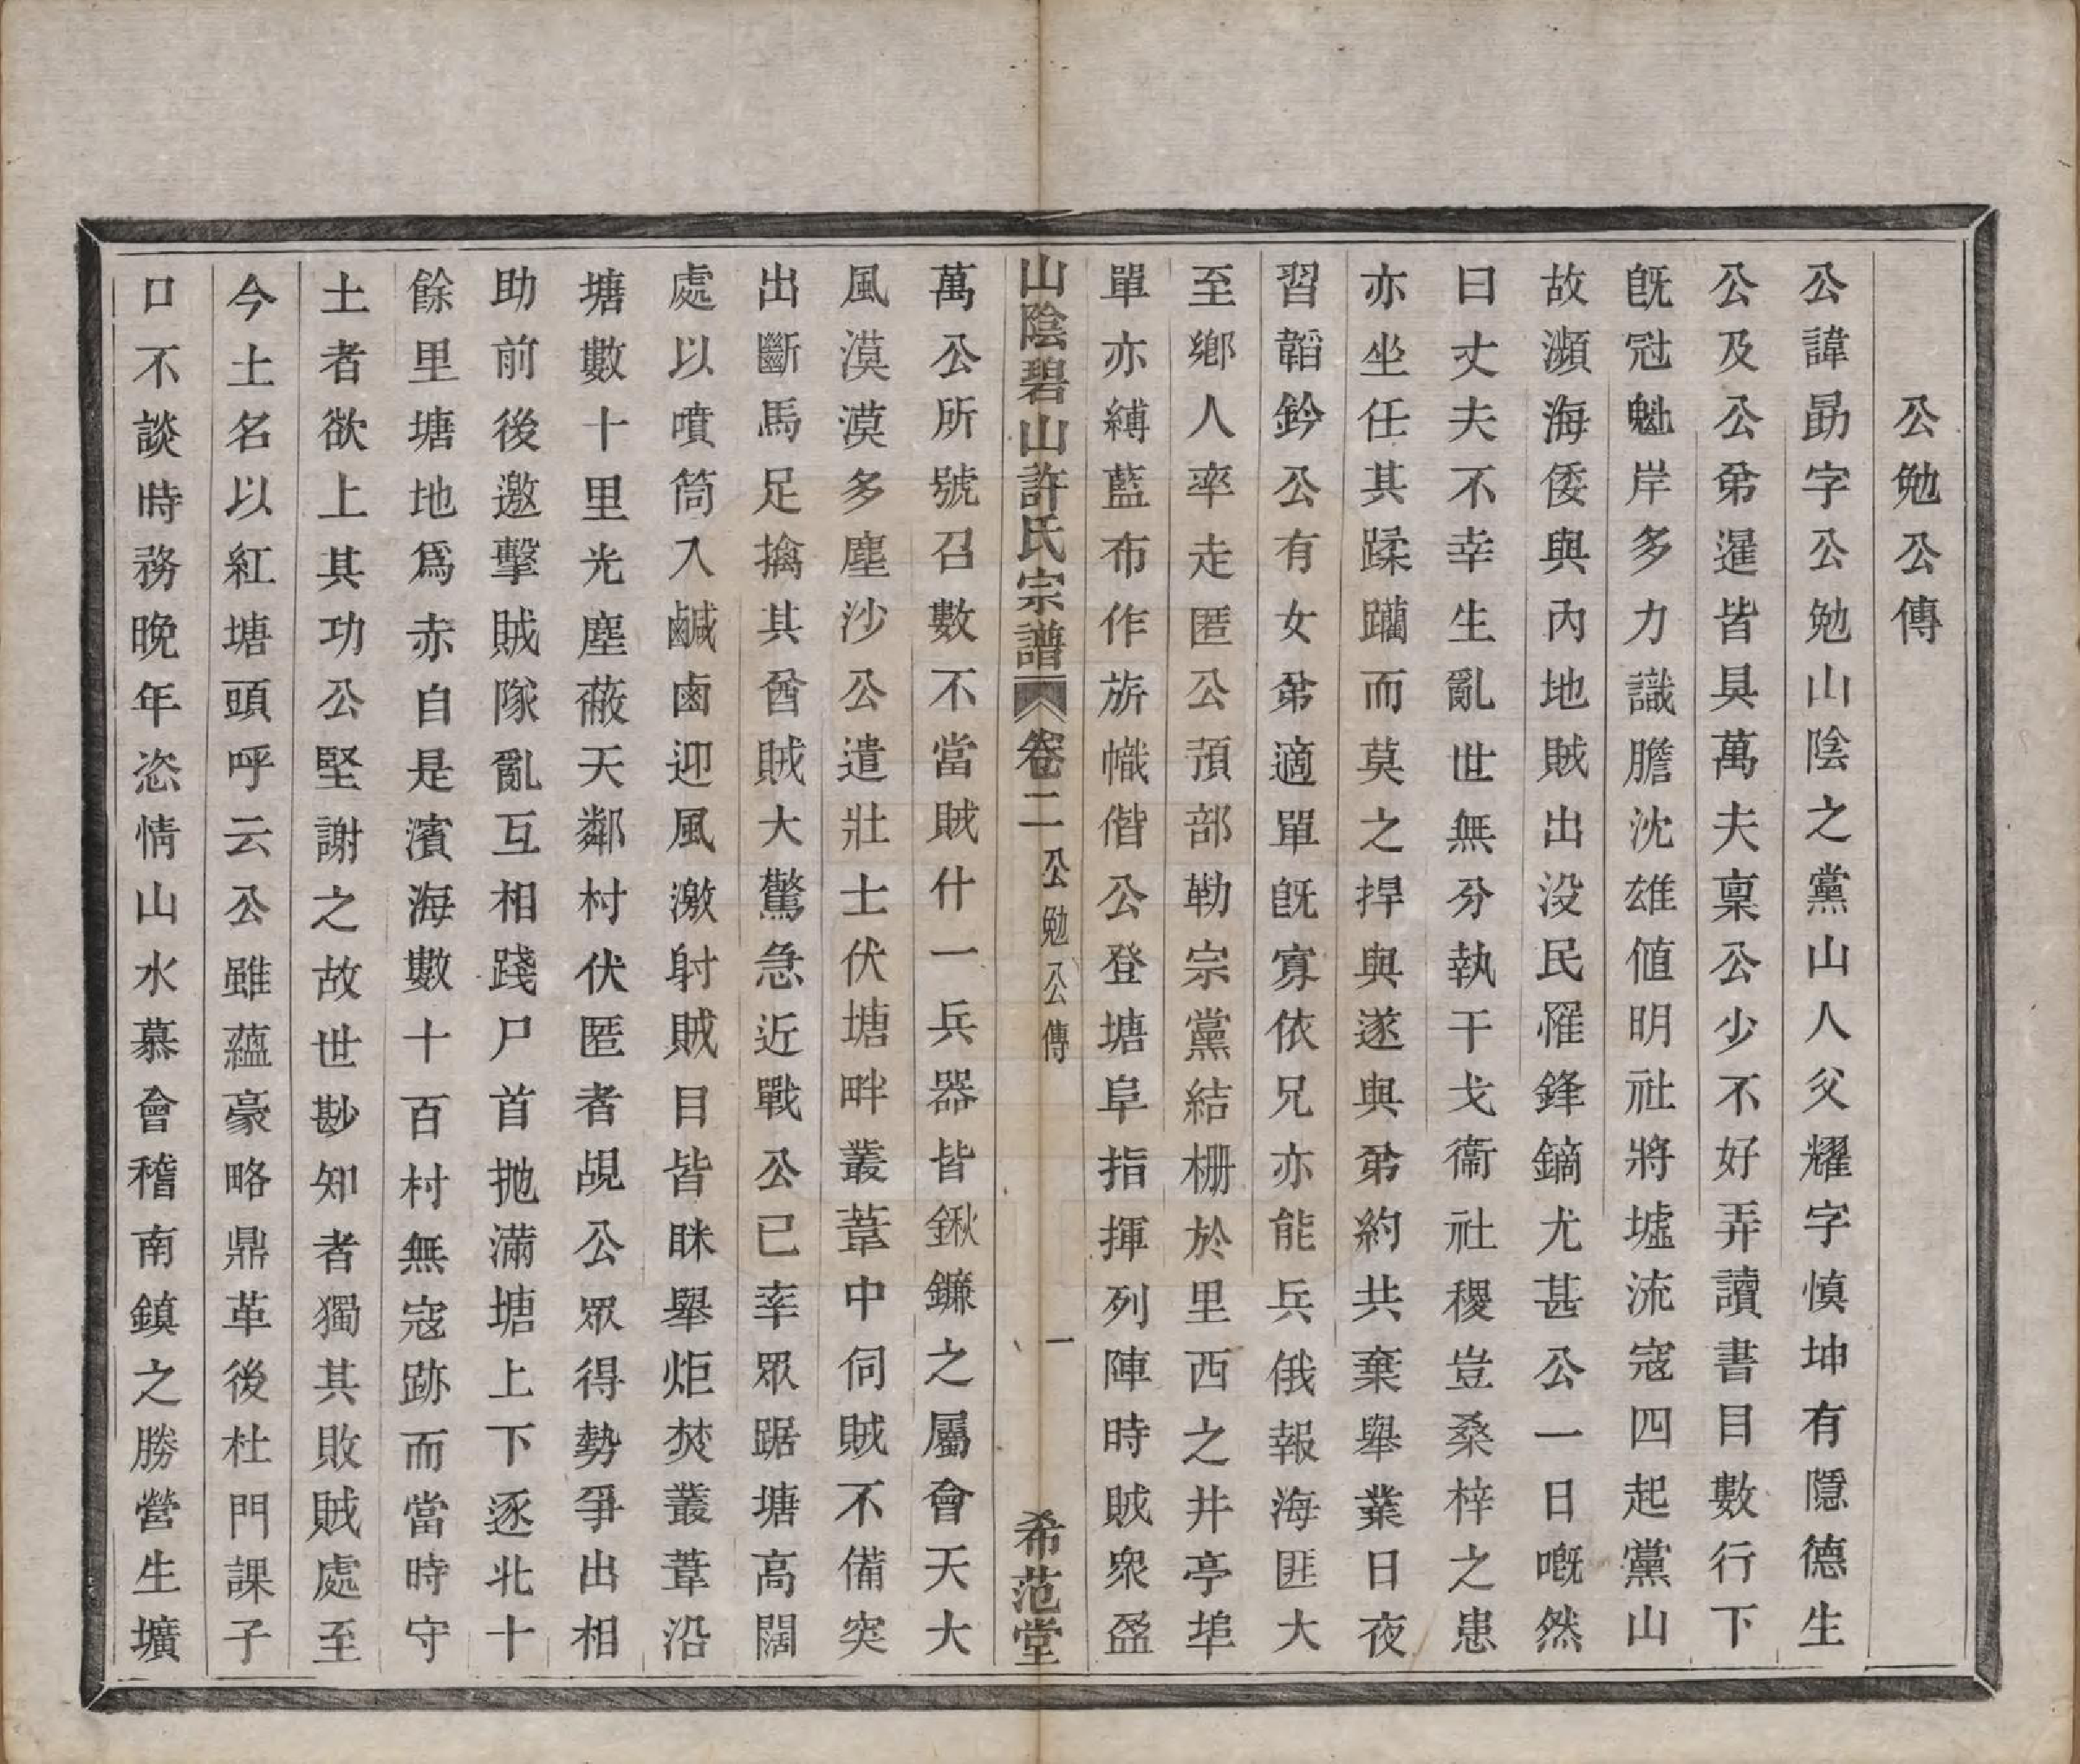 公勉公傳
公諱勗字公勉山陰之黨山人父耀字慎坤有隱德生
公及公弟暹皆具萬夫稟公少不好弄讀書目數行下
旣冠魁岸多力識膽沈雄値明社將墟流寇四起黨山
故瀕海倭與內地賊出没民罹鋒鏑尤甚公一日嘅然
曰丈夫不幸生亂世無分執干戈衞社稷豈桑梓之患
亦坐任其蹂躪而莫之捍與遂與弟約共棄舉業日夜
習韜鈐公有女弟適單旣寡依兄亦能兵俄報海匪大
至鄉人率走匿公預部勒宗黨結柵於里西之井亭埠
單亦縛藍布作旂幟偕公登塘阜指揮列陣時賊衆盈
山陰碧山許氏宗譜 卷二 公勉公傳 一 希范堂
萬公所號召數不當賊什一兵器皆鍬鐮之屬會天大
風漠漠多塵沙公遣壯士伏塘畔叢葦中伺賊不備突
出斷馬足擒其酋賊大驚急近戰公已率眾踞塘高闊
處以噴筒入鹹鹵迎風激射賊目皆眯舉炬焚叢葦沿
塘數十里光塵蔽天鄰村伏匿者覘公眾得勢爭出相
助前後邀擊賊隊亂互相踐尸首拋滿塘上下逐北十
餘里塘地爲赤自是濱海數十百村無寇跡而當時守
土者欲上其功公堅謝之故世尠知者獨其敗賊處至
今土名以紅塘頭呼云公雖蘊豪略鼎革後杜門課子
口不談時務晚年恣情山水慕會稽南鎮之勝營生壙